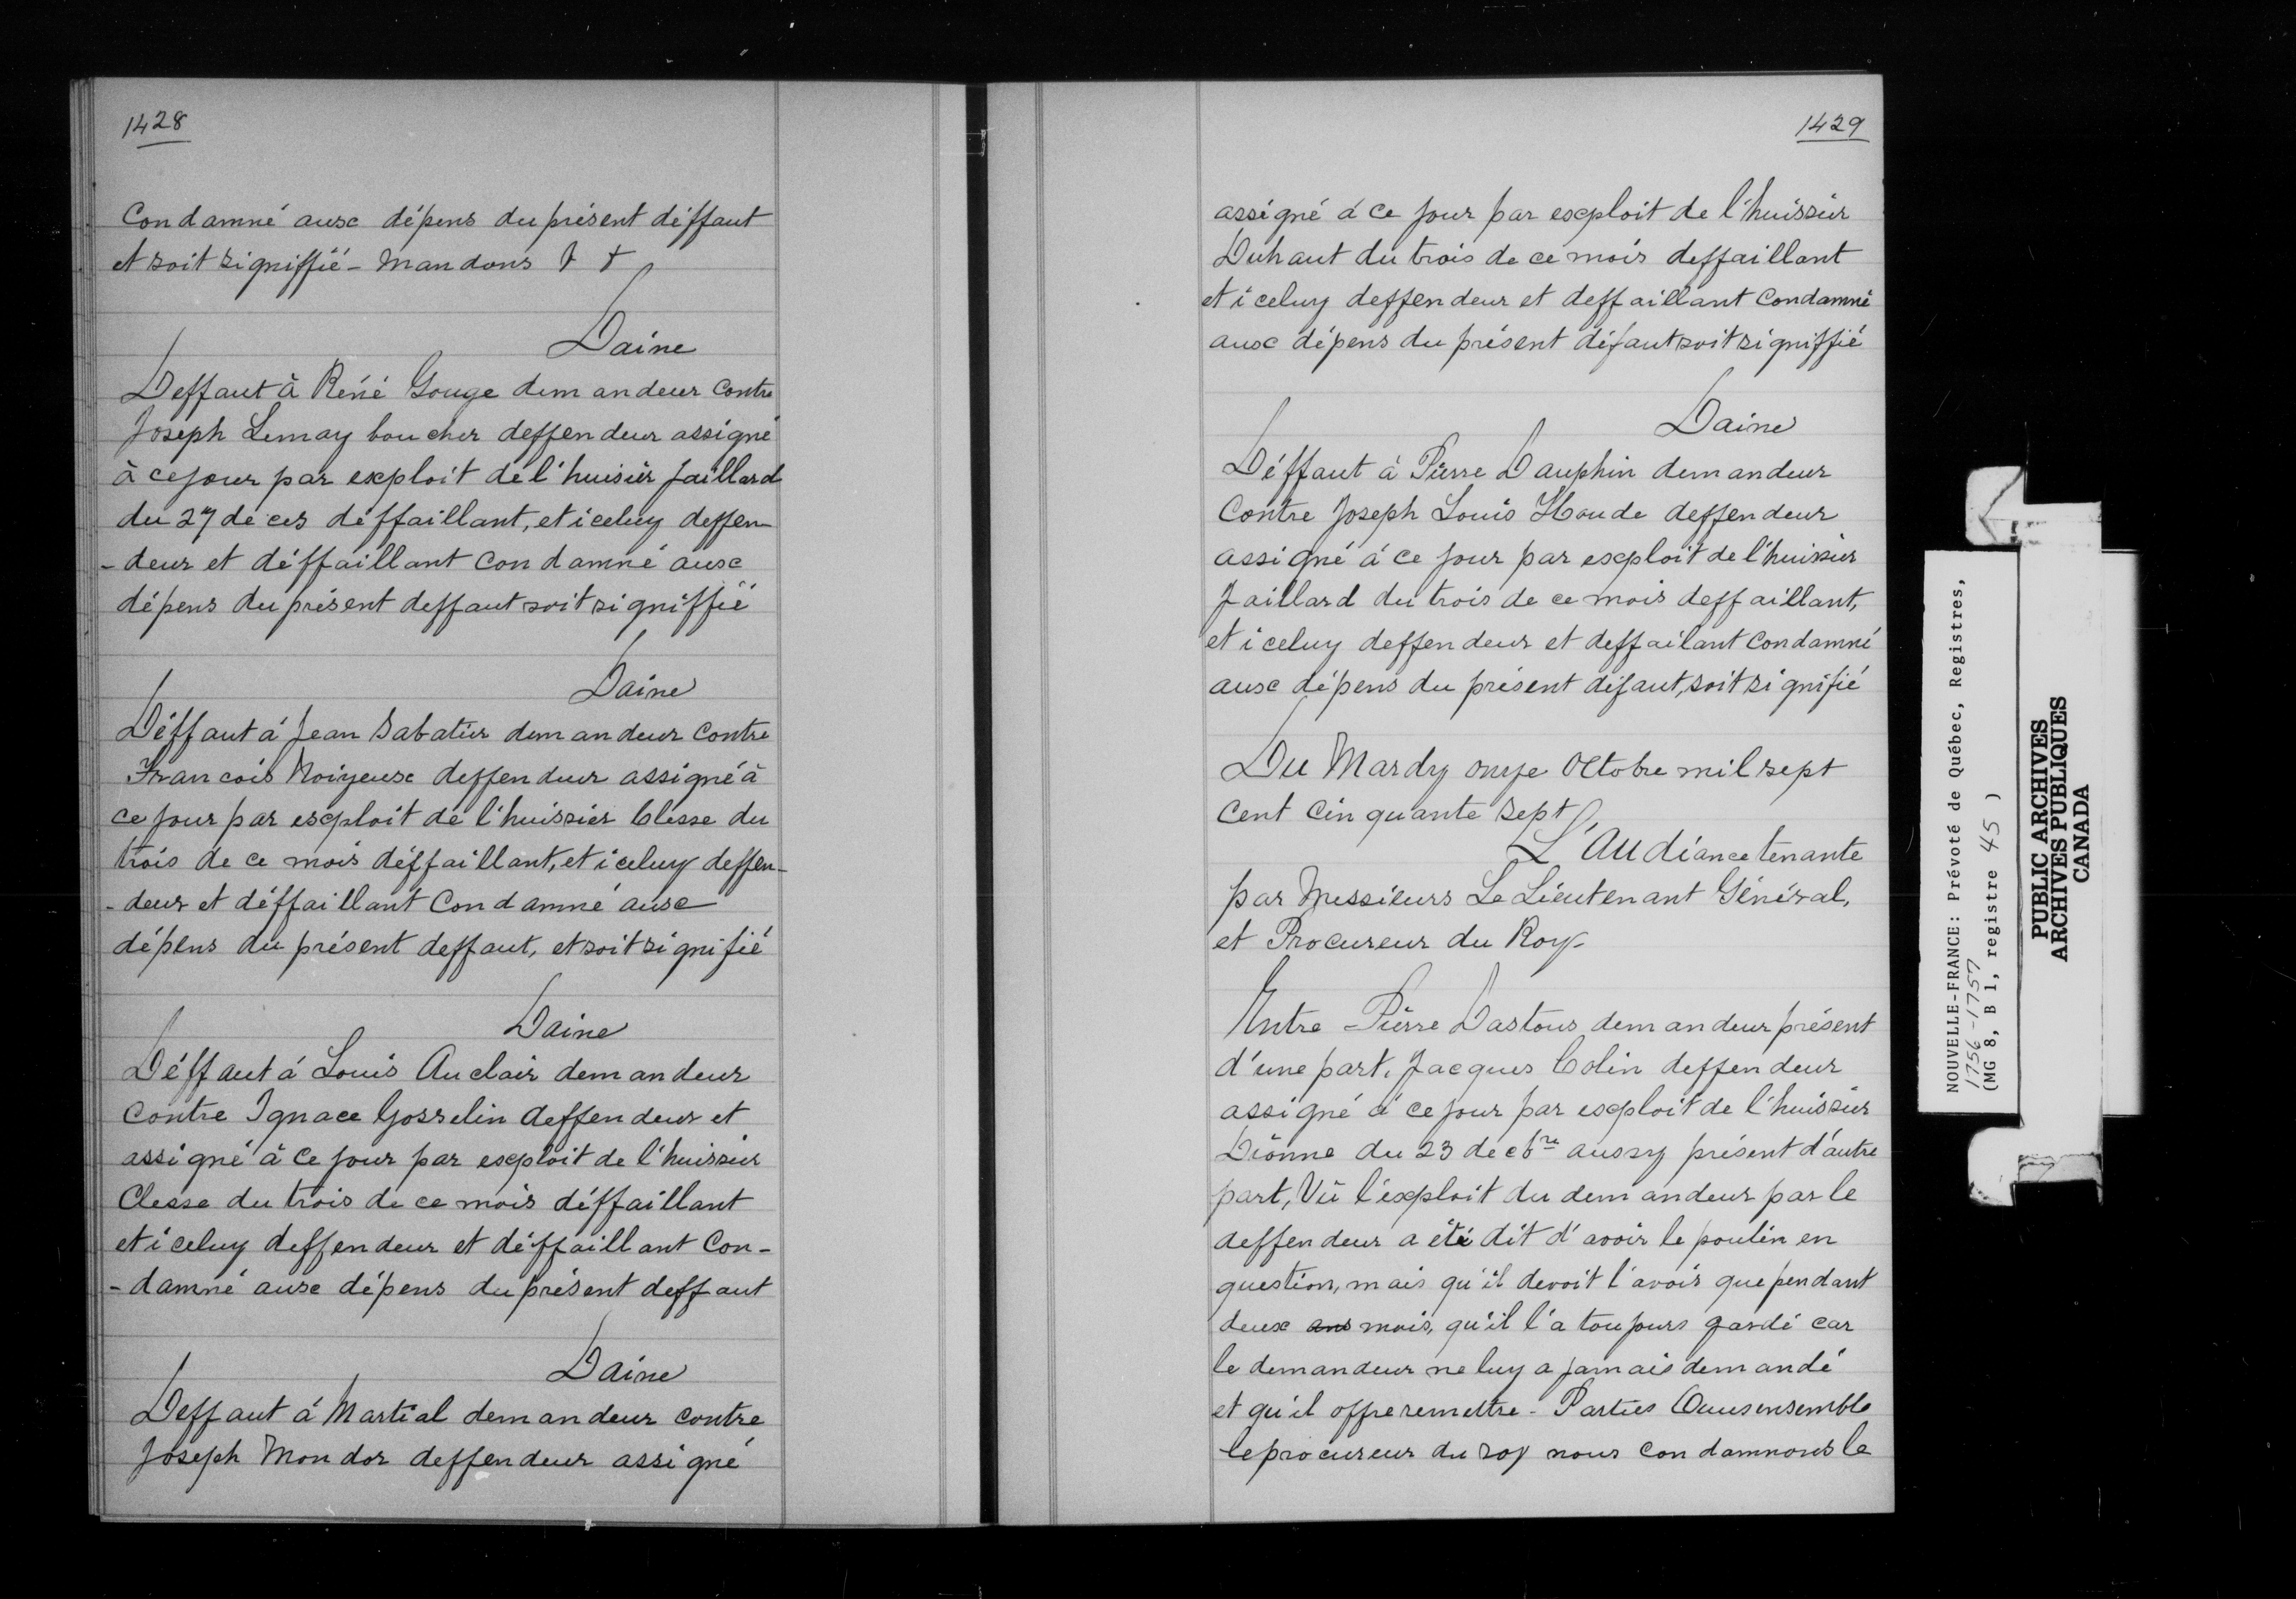 1428
Condamné aux dépens du présent déffaut
et soit signiffié - Mandons & &
Daine
Deffaut à Réné Gouge demandeur contre
Joseph Lemay boucher deffendeur assigné
à ce jour par exploit de l'huisier Jaillard
du 27 de ces déffaillant, et iceluy deffen-
-deur et déffaillant Condamné aux
dépens du présent deffaut soit signiffié
Daine
Déffaut à Jean Sabatier demandeur contre
Francois Noiyeux deffendeur assigné à
ce jour par exploit de l'huissier Clesse du
trois de ce mois déffaillant, et iceluy deffen-
-deur et déffaillant Condamné aux
dépens du présent deffaut, et soit signifié
Daine
Déffaut à Louis Auclair demandeur
Contre Ignace Gosselin deffendeur et
assigné à ce jour par exploit de l'huissier
Clesse du trois de ce mois déffaillant
et iceluy deffendeur et déffaillant Con-
-damné aux dépens du présent deffaut
Daine
Deffaut à Martial demandeur contre
Joseph Mondor deffendeur assigné
1429
assigné à ce jour par exploit de l'huissier
Duhaut du trois de ce mois deffaillant
et iceluy deffendeur et deffaillant Condamné
aux dépens du présent défaut soit signiffié
Daine
Déffaut à Pierre Dauphin demandeur
Contre Joseph Louis Houde deffendeur
assigné à ce jour par exploit de l'huissier
Jaillard du trois de ce mois deffaillant,
et iceluy deffendeur et deffailant Condamné
aux dépens du présent défaut, soit signifié
Du Mardy onze Octobre mil sept
Cent Cinquante sept
L'Audiance tenante
par Messieurs Le Lieutenant Général,
et Procureur du Roy
Entre Pierre Dastous demandeur présent
d'une part. Jacques Colin deffendeur
assigné à ce jour par exploit de l'huissier
Dionne du 23 de cbre aussy présent d'autre
part, Vû l'exploit du demandeur par le
deffendeur a été dit d'avoir le poulin en
question, mais qu'il devoit l'avoir que pendant
deux ans mois, qu'il l'a toujours gardé car
le demandeur ne luy a jamais demandé
et qu'il offre remettre - Parties Ouies ensemble
le procureur du roy nous condamnons le
NOUVELLE-FRANCE: Prévoté de Québec, Registres,
1756-1757
(MG 8, B 1, registre 45 )
PUBLIC ARCHIVES
ARCHIVES PUBLIQUES
CANADA